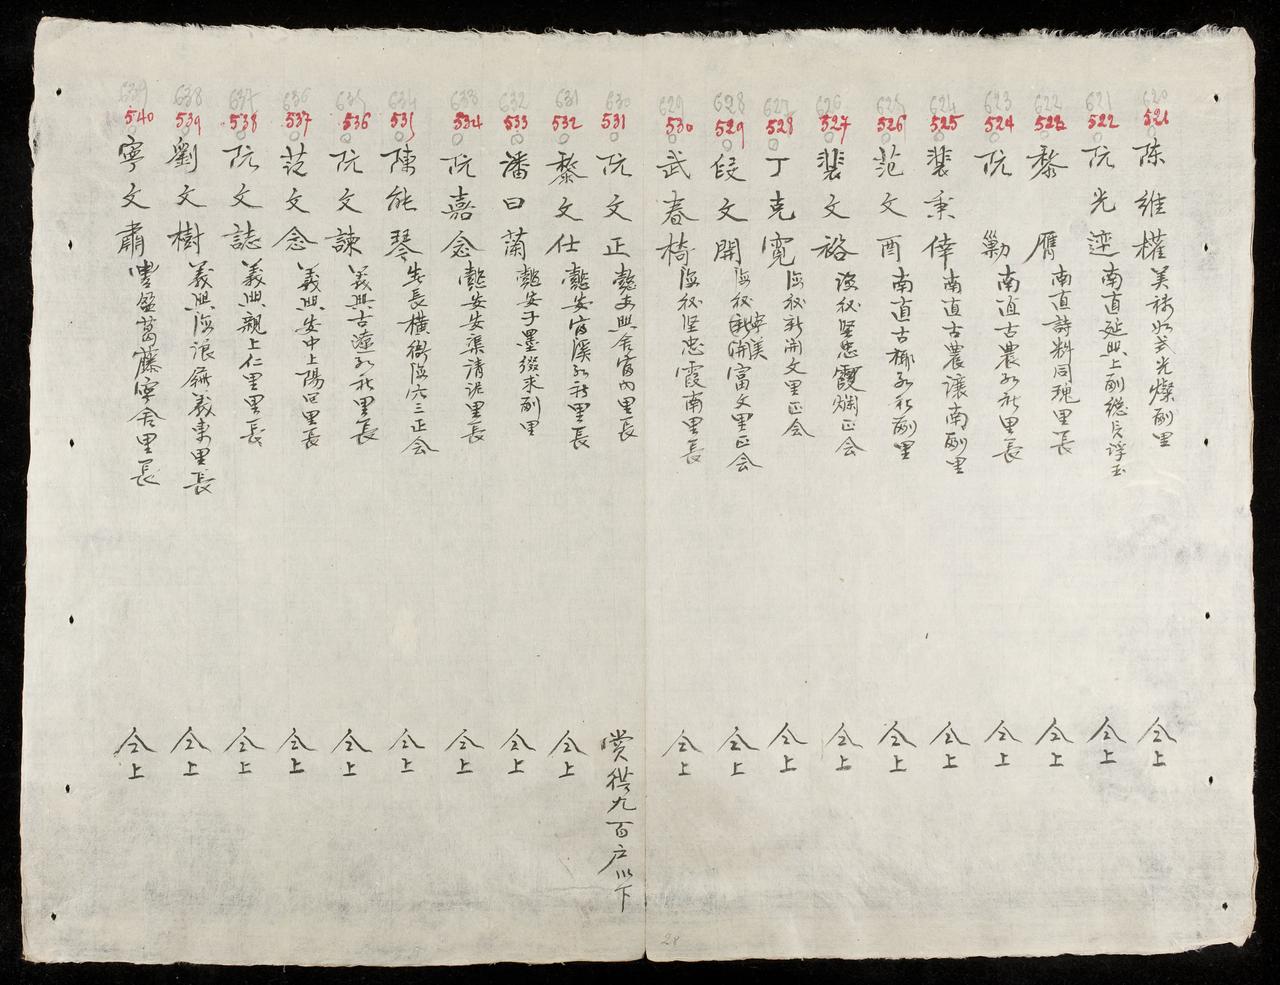 620
521
陈維權美祿
光燦副里
仝上
621
522
阮光
南直延興上副総
仝上
622
523
黎雁南直詩料同瑰里長
仝上
623
524
阮勦南直古農
社里長
仝上
624
525
裴秉倖南直古農讓南副里
仝上
625
526
范文酉南直古
副里
仝上
626
527
裴文裕
坚忠霞烱正会
仝上
627
528
丁克寬海秘新開文里正会
仝上
628
529
段文開海秘新開富文里正会
寧美
仝上
629
530
武春椅海秘坚忠霞南里長
仝上
630
531
阮文正懿安興舍富内里長
賞供九百户以下
631
532
黎文仕懿安富溪
社里長
仝上
632
533
潘曰蘭懿安子墨缀求副里
仝上
633
534
阮嘉念懿安安渠清泥里長
仝上
634
535
陳能琴
長橫衖海六三正会
仝上
635
536
阮文諫義興古
社里長
仝上
636
537
范文念義興安中上陽
里長
仝上
637
538
阮文誌義興親上仁里里長
仝上
638
539
劉文樹義興海浪
義東里長
仝上
639
540
寧文肅豐盈葛藤寧舍里長
仝上
28